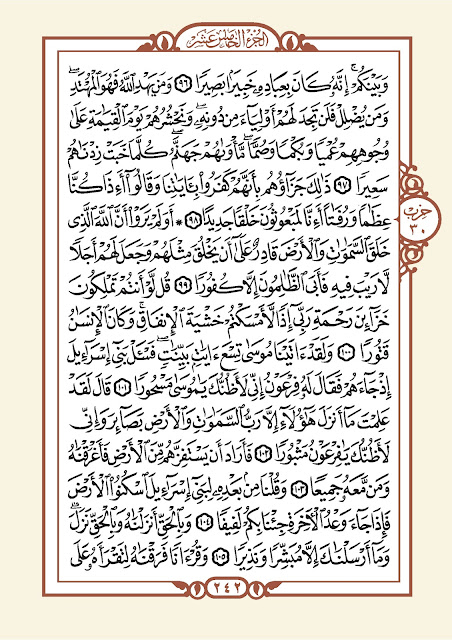 الجزء الخامس عشر
وَبَيْنَكُمْ ۚ إِنَّهُ كَانَ بِعِبَادِهِ خَبِيرًا بَصِيرًا ﴿٩٦﴾ وَمَن يَهْدِ اللَّهُ فَهُوَ الْمُهْتَدِ ۖ
وَمَن يُضْلِلْ فَلَن تَجِدَ لَهُمْ أَوْلِيَاءَ مِن دُونِهِ ۖ وَنَحْشُرُهُمْ يَوْمَ الْقِيَامَةِ عَلَىٰ
وُجُوهِهِمْ عُمْيًا وَبُكْمًا وَصُمًّا ۖ مَّأْوَاهُمْ جَهَنَّمُ ۖ كُلَّمَا خَبَتْ زِدْنَاهُمْ
سَعِيرًا ﴿٩٧﴾ ذَٰلِكَ جَزَاؤُهُم بِأَنَّهُمْ كَفَرُوا بِآيَاتِنَا وَقَالُوا أَإِذَا كُنَّا
عِظَامًا وَرُفَاتًا أَإِنَّا لَمَبْعُوثُونَ خَلْقًا جَدِيدًا ﴿٩٨﴾ * أَوَلَمْ يَرَوْا أَنَّ اللَّهَ الَّذِي
خَلَقَ السَّمَاوَاتِ وَالْأَرْضَ قَادِرٌ عَلَىٰ أَن يَخْلُقَ مِثْلَهُمْ وَجَعَلَ لَهُمْ أَجَلًا
لَّا رَيْبَ فِيهِ فَأَبَى الظَّالِمُونَ إِلَّا كُفُورًا ﴿٩٩﴾ قُل لَّوْ أَنتُمْ تَمْلِكُونَ
خَزَائِنَ رَحْمَةِ رَبِّي إِذًا لَّأَمْسَكْتُمْ خَشْيَةَ الْإِنفَاقِ ۚ وَكَانَ الْإِنسَانُ
قَتُورًا ﴿١٠٠﴾ وَلَقَدْ آتَيْنَا مُوسَىٰ تِسْعَ آيَاتٍ بَيِّنَاتٍ ۖ فَسْئَلْ بَنِي إِسْرَائِيلَ
إِذْ جَاءَهُمْ فَقَالَ لَهُ فِرْعَوْنُ إِنِّي لَأَظُنُّكَ يَا مُوسَىٰ مَسْحُورًا ﴿١٠١﴾ قَالَ لَقَدْ
عَلِمْتَ مَا أَنزَلَ هَٰؤُلَاءِ إِلَّا رَبُّ السَّمَاوَاتِ وَالْأَرْضِ بَصَائِرَ وَإِنِّي
لَأَظُنُّكَ يَا فِرْعَوْنُ مَثْبُورًا ﴿١٠٢﴾ فَأَرَادَ أَن يَسْتَفِزَّهُم مِّنَ الْأَرْضِ فَأَغْرَقْنَاهُ
وَمَن مَّعَهُ جَمِيعًا ﴿١٠٣﴾ وَقُلْنَا مِن بَعْدِهِ لِبَنِي إِسْرَائِيلَ اسْكُنُوا الْأَرْضَ
فَإِذَا جَاءَ وَعْدُ الْآخِرَةِ جِئْنَا بِكُمْ لَفِيفًا ﴿١٠٤﴾ وَبِالْحَقِّ أَنزَلْنَاهُ وَبِالْحَقِّ نَزَلَ ۗ
وَمَا أَرْسَلْنَاكَ إِلَّا مُبَشِّرًا وَنَذِيرًا ﴿١٠٥﴾ وَقُرْآنًا فَرَقْنَاهُ لِتَقْرَأَهُ عَلَى
حزب
٣٠
٢٤٢